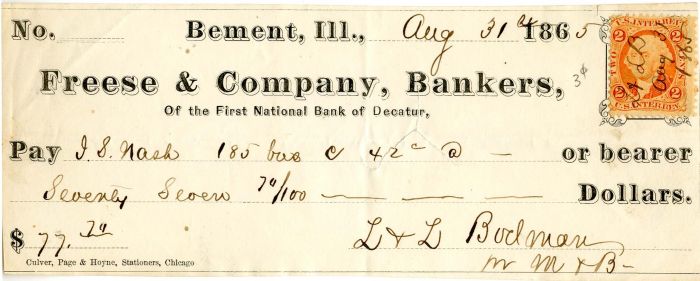 No. Bement, Ill., Aug 31 st 1865
Freese & Company, Bankers,
Of the First National Bank of Decatur,
3¢
Pay I. S. Nash 185 bus c 42 c a — or bearer
Seventy Seven 70/100 — — — — Dollars.
$ 77.70
L & L Bodman
M & B
Culver, Page & Hoyne, Stationers, Chicago
U.S. INTER. REV.
2 2
TWO CENTS
L & L B
Aug 31
65
2 2
U.S. INTER. REV.